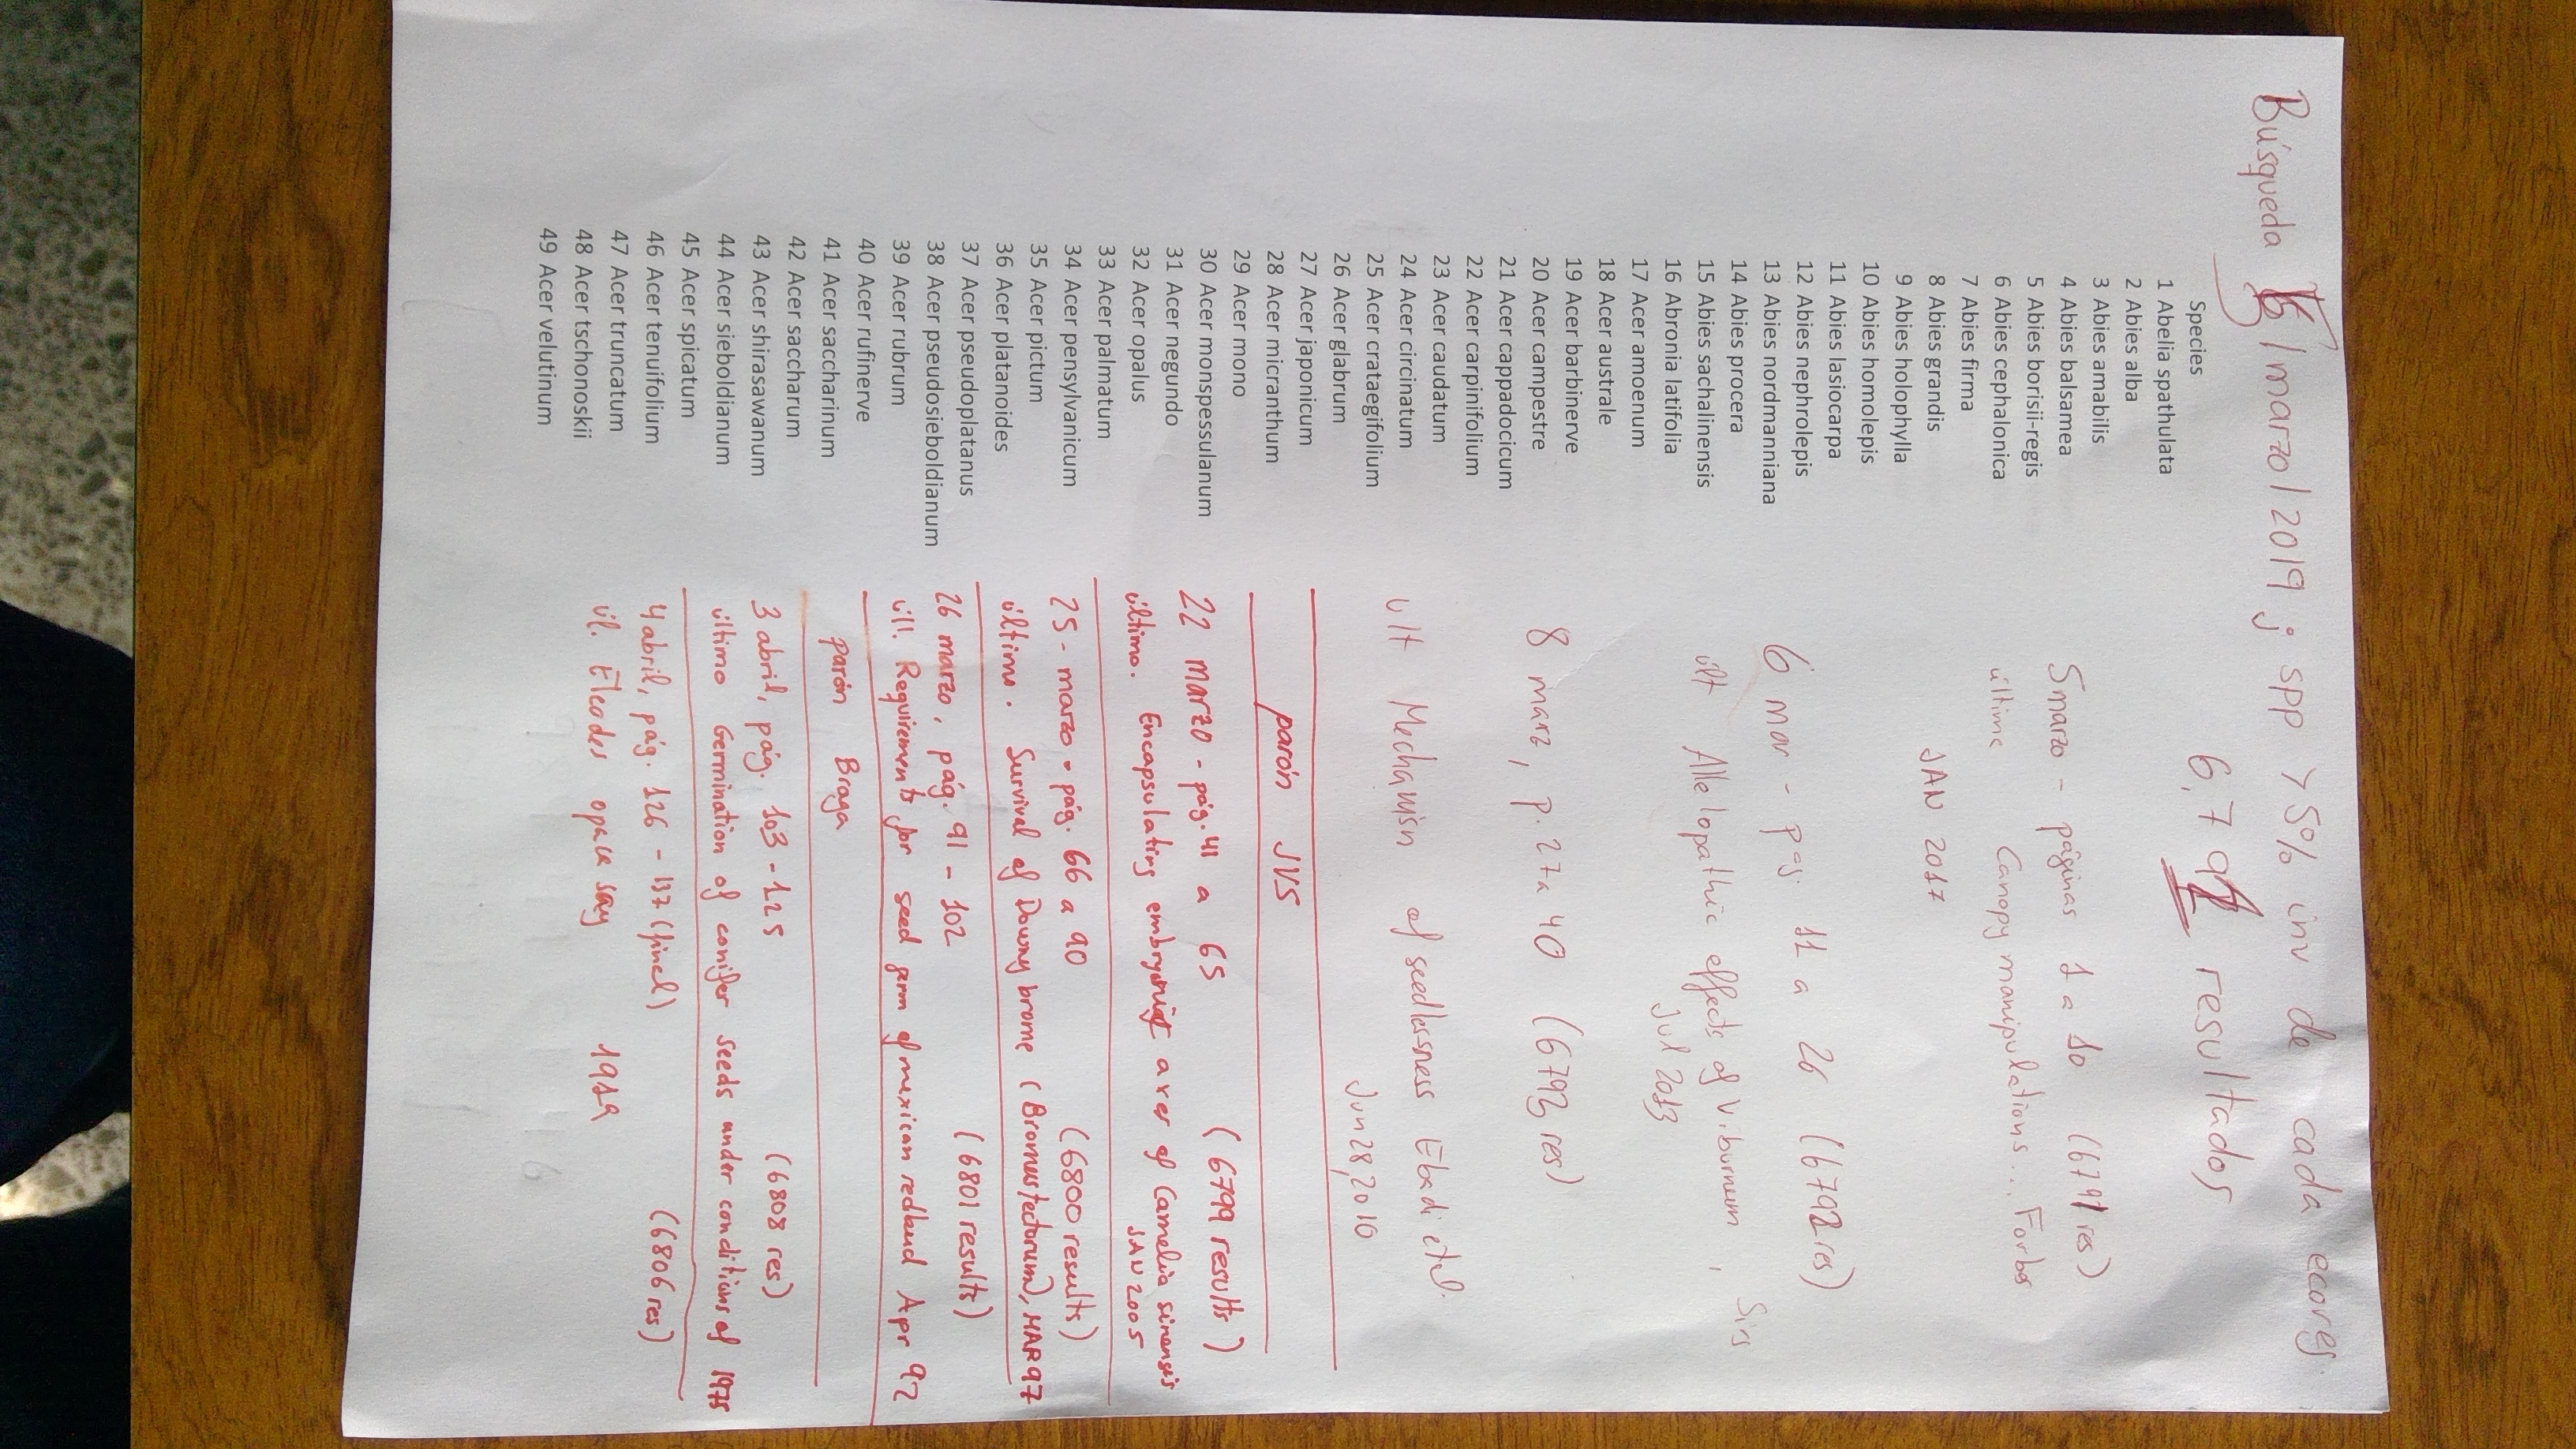 Búsqueda 5/marzo/2019; spp >5% inv de cada ecoreg.
6,791 resultados
Species
1 Abelia spathulata
2 Abies alba
3 Abies amabilis
4 Abies balsamea
5 Abies borisii-regis
6 Abies cephalonica
7 Abies firma
8 Abies grandis
9 Abies holophylla
10 Abies homolepis
11 Abies lasiocarpa
12 Abies nephrolepis
13 Abies nordmanniana
14 Abies procera
15 Abies sachalinensis
16 Abronia latifolia
17 Acer amoenum
18 Acer australe
19 Acer barbinerve
20 Acer campestre
21 Acer cappadocicum
22 Acer carpinifolium
23 Acer caudatum
24 Acer circinatum
25 Acer crataegifolium
26 Acer glabrum
27 Acer japonicum
28 Acer micranthum
29 Acer mono
30 Acer monspessulanum
31 Acer negundo
32 Acer opalus
33 Acer palmatum
34 Acer pensylvanicum
35 Acer pictum
36 Acer platanoides
37 Acer pseudoplatanus
38 Acer pseudosieboldianum
39 Acer rubrum
40 Acer rufinerve
41 Acer saccharinum
42 Acer saccharum
43 Acer shirasawanum
44 Acer sieboldianum
45 Acer spicatum
46 Acer tenuifolium
47 Acer truncatum
48 Acer tschonoskii
49 Acer velutinum
5 marzo - páginas 1 a 10 (6791 res)
última Canopy manipulations... Forbes
JAN 2017
6 mar - pag. 11 a 26 (6792 res)
últ Allelopathic effects of Viburnum, Sirs
Jul 2013
8 marz, p. 27 a 40 (6793 res)
ult Mechanism of seedlessness Ebadi et al.
Jun 28, 2010
parón JVS
22 marzo - pág. 41 a 65 (6799 results)
último. Encapsulating embryonic axes of Camelia sinensis
JAN 2005
25 - marzo - pág. 66 a 90 (6800 results)
último. Survival of Downy brome (Bromus tectorum), MAR 97
26 marzo, pág. 91 - 102 (6801 results)
últ. Requirements for seed germ of mexican redbud Apr 92
parón Braga
3 abril, pág. 103 - 125 (6808 res)
último Germination of conifer seeds under conditions of 1975
4 abril, pág. 126 - 137 (final) (6806 res)
úl. Eleodes opaca say 1919